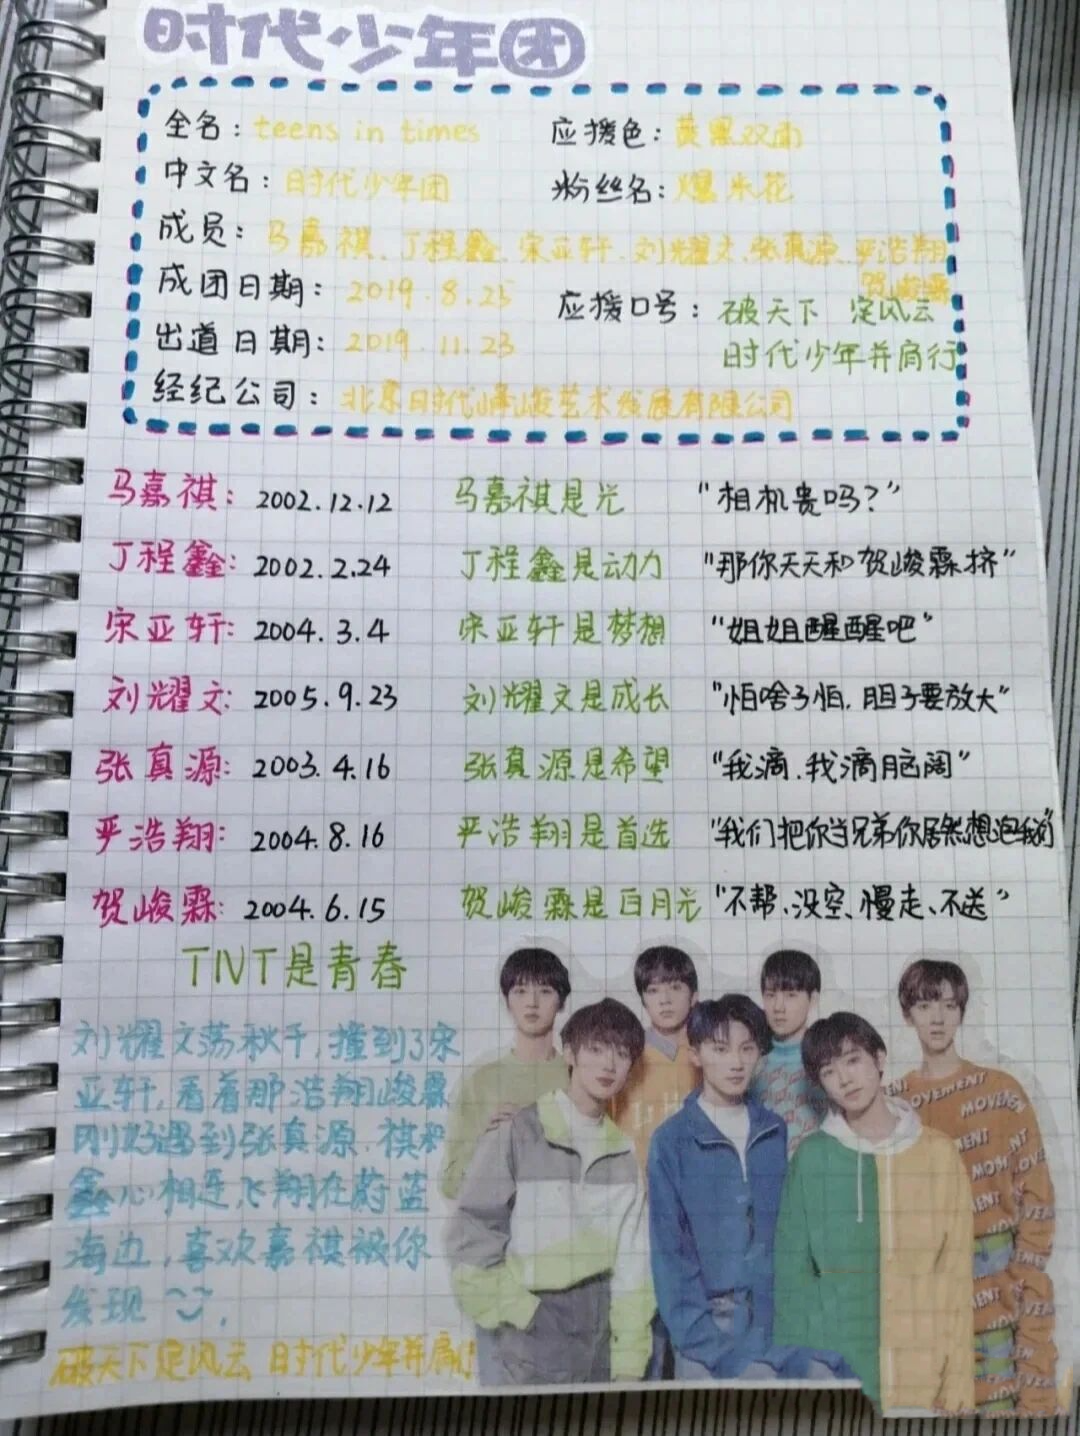 时代少年团
全名：teens in times 应援色：黄黑双面
中文名：时代少年团 粉丝名：爆米花
成员：马嘉祺、丁程鑫、宋亚轩、刘耀文、张真源、严浩翔
贺峻霖
成团日期：2019.8.25 应援口号：破天下 定风云
时代少年并肩行
出道日期：2019.11.23
经纪公司：北京时代峰峻艺术发展有限公司
马嘉祺：2002.12.12 马嘉祺是光 “相机贵吗？”
丁程鑫：2002.2.24 丁程鑫是动力 “那你天天和贺峻霖挤”
宋亚轩：2004.3.4 宋亚轩是梦想 “姐姐醒醒吧”
刘耀文：2005.9.23 刘耀文是成长 “怕啥子怕，胆子要放大”
张真源：2003.4.16 张真源是希望 “我滴、我滴脑阔”
严浩翔：2004.8.16 严浩翔是首选 “我们把你当兄弟你居然想泡我们”
贺峻霖：2004.6.15 贺峻霖是白月光 “不帮、没空、慢走、不送”
TNT是青春
刘耀文荡秋千，撞到了宋
亚轩，看着那浩翔峻霖
刚好遇到张真源，祺和
鑫心相连飞翔在蔚蓝
海边，喜欢嘉祺被你
发现
破天下定风云 时代少年并肩行
MOVEMENT
MOVEMENT
MOMENT